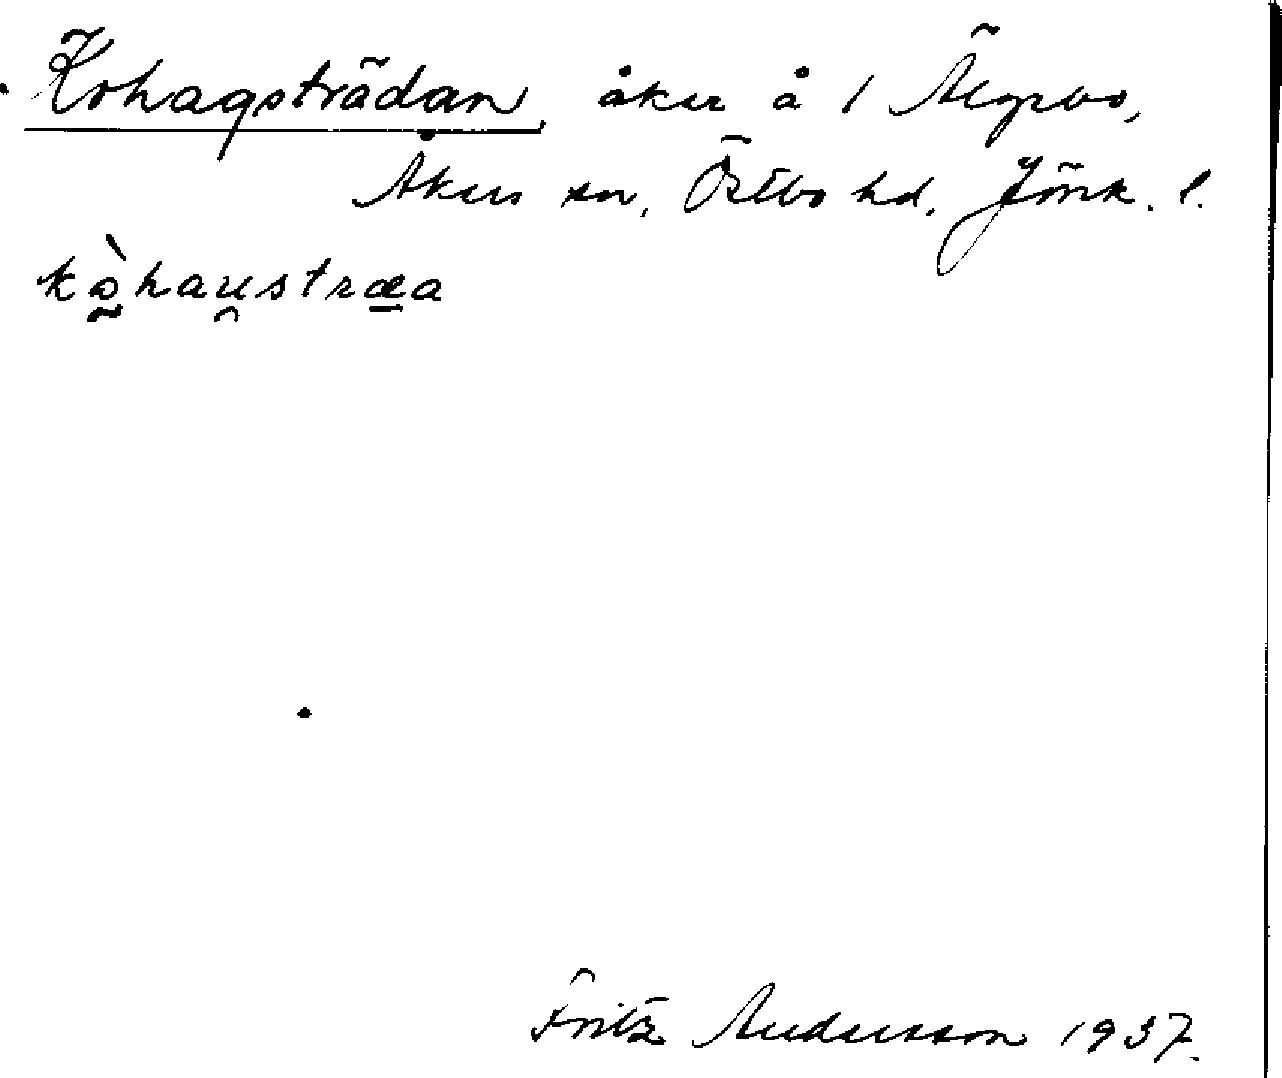 Kohagsträdan, åker å 1 Älgebo,
Åkers sn, Östbo hd, Jönk. l.
kòhaustræa
Fritz Andersson 1937.